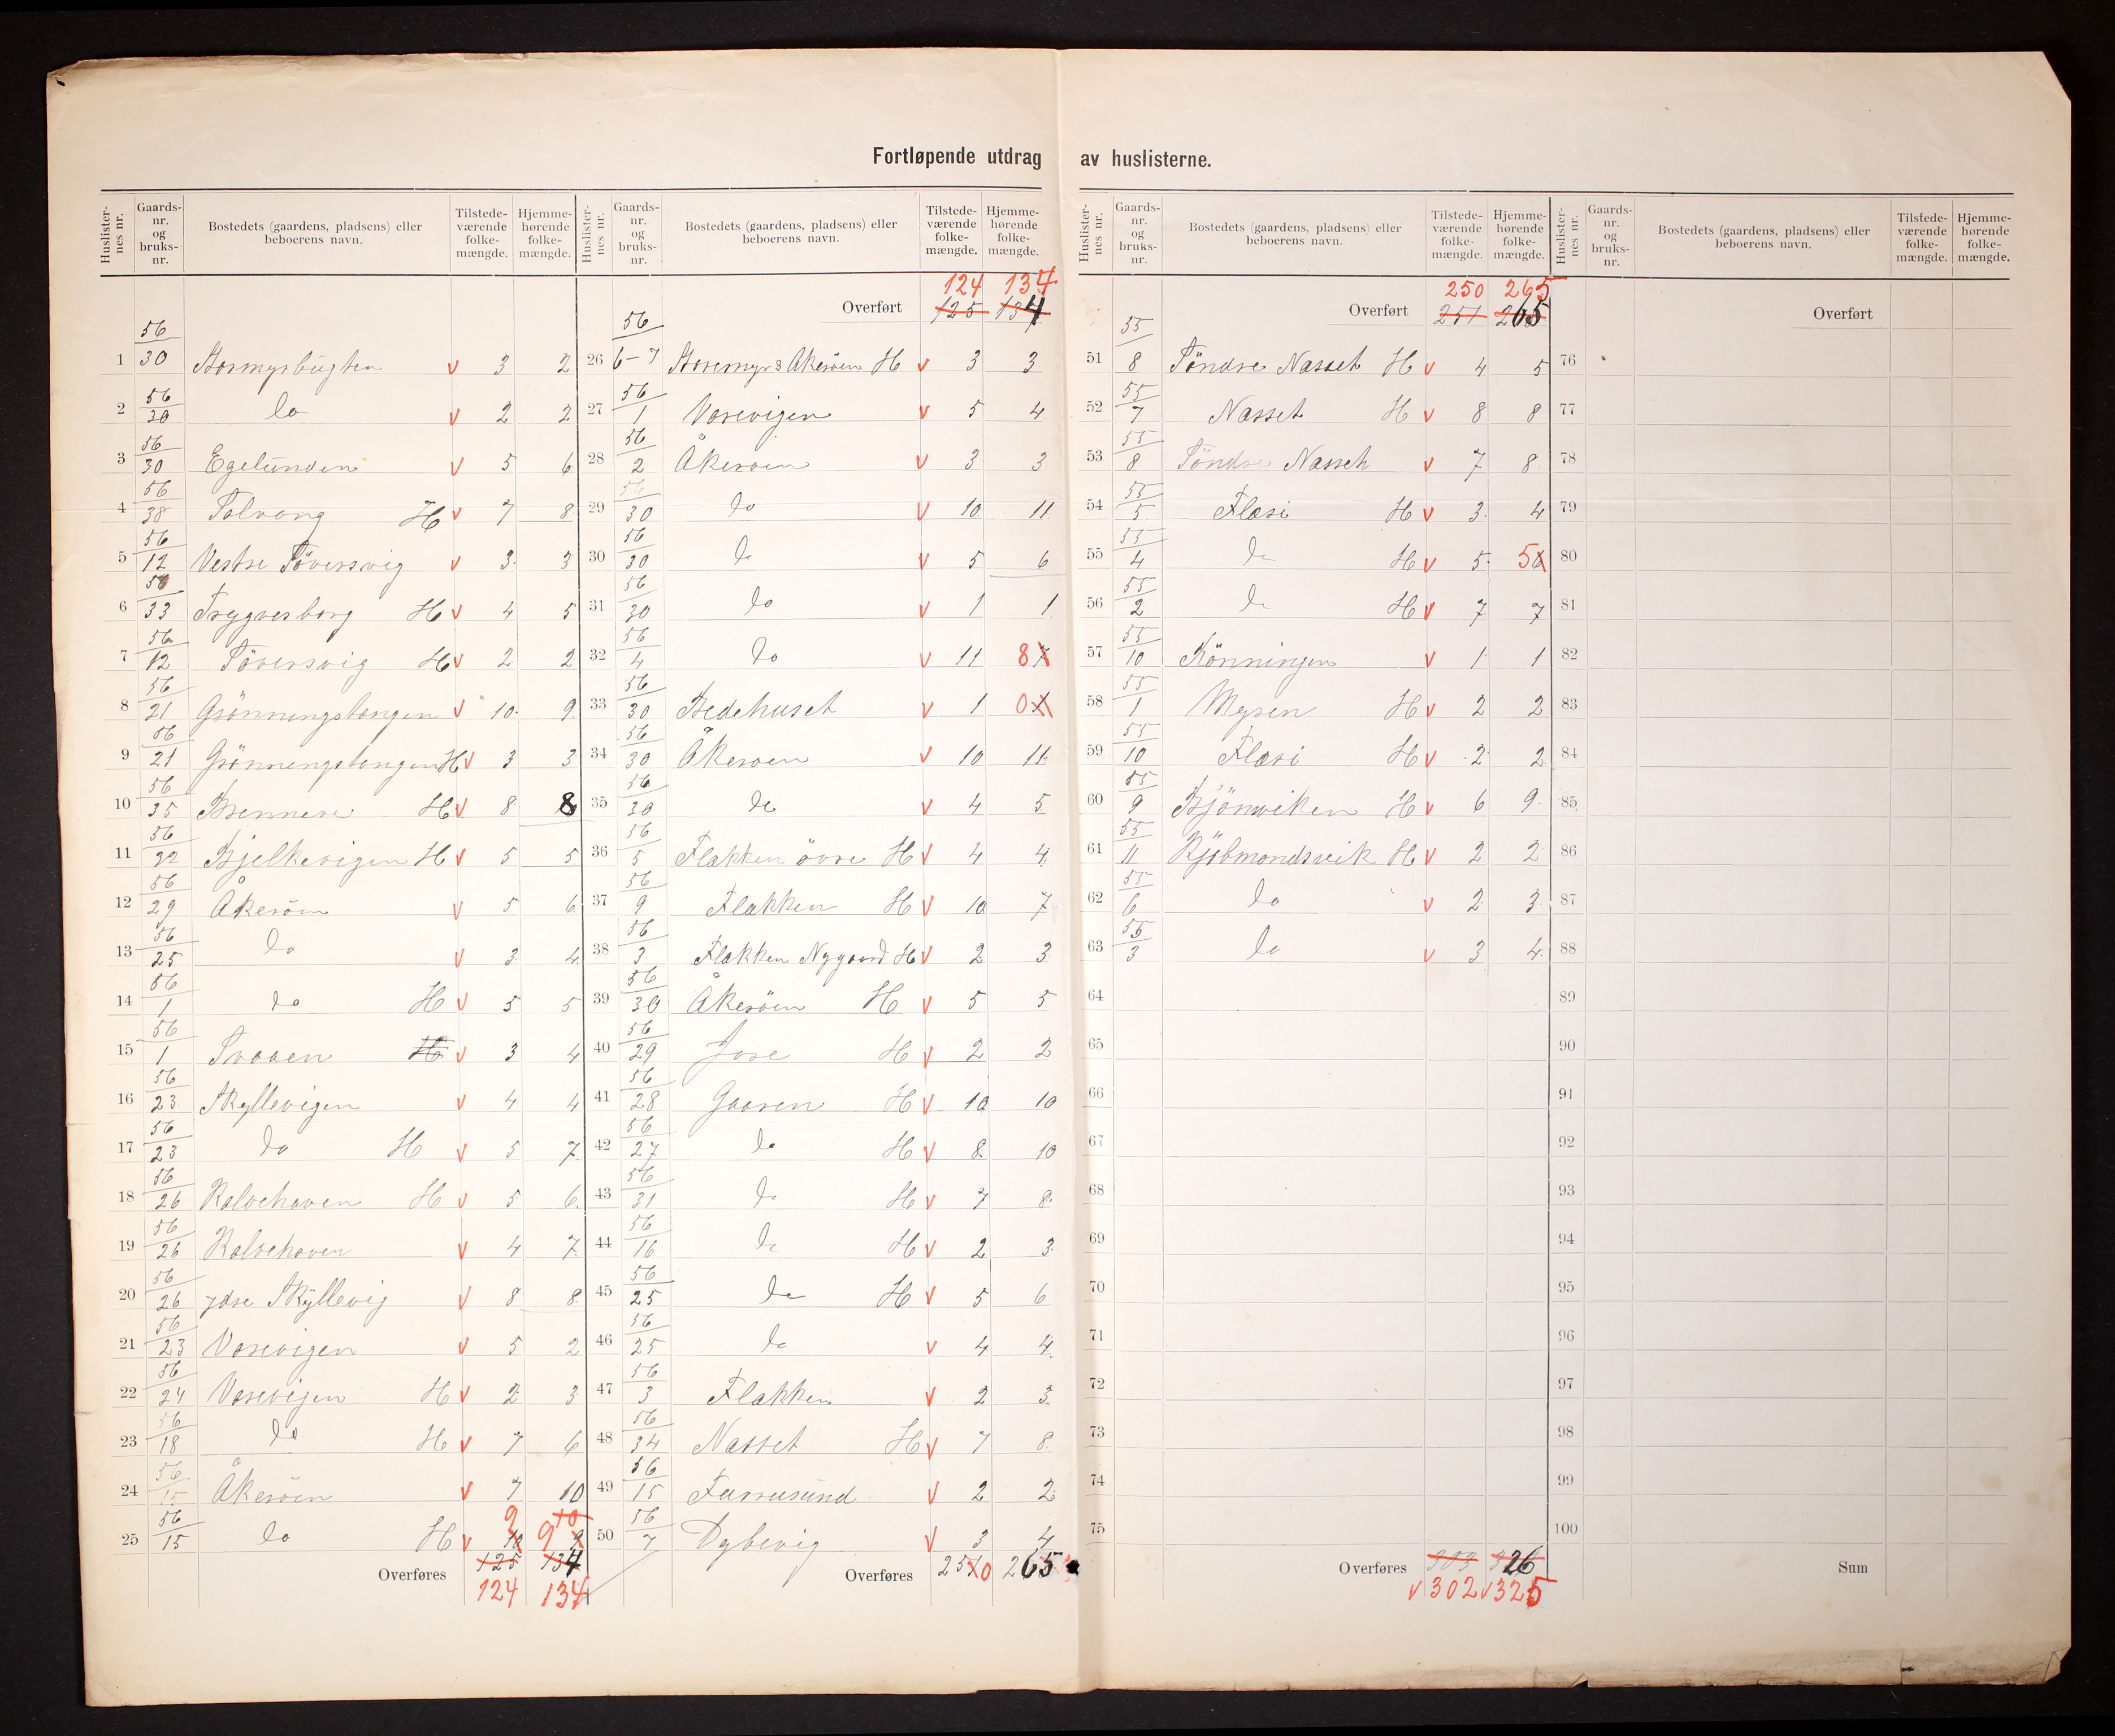 Fortløpende utdrag av huslisterne.
Huslisternes nr. Gaardsnr. og bruksnr. Bostedets (gaardens, pladsens) eller beboerens navn. Tilstedeværende folkemængde. Hjemmehørende folkemængde.
1 56/30 Stormyrbugten v 3 2
2 56/30 do v 2 2
3 56/30 Egelunden v 5 6
4 56/38 Solvang H v 7 8
5 56/12 Vestre Töversvig v 3 3
6 56/33 Trygvesborg H v 4 5
7 56/12 Töversvig H v 2 2
8 56/21 Grönningstangen v 10 9
9 56/21 Grönningstangen H v 3 3
10 56/35 Brennere H v 8 8
11 56/32 Bjelkevigen H v 5 5
12 56/29 Åkeröen v 5 6
13 56/25 do v 3 4
14 56/1 do H v 5 5
15 56/1 Svaaen H v 3 4
16 56/23 Skyllevigen v 4 4
17 56/23 do H v 5 7
18 56/26 Kalvehaven H v 5 6
19 56/26 Kalvehaven v 4 7
20 56/26 ydre Skyllevig v 8 8
21 56/23 Vasevigen v 5 2
22 56/24 Vasevigen H v 2 3
23 56/18 do H v 7 6
24 56/15 Åkeröen v 7 10
25 56/15 do H v 10 9 9 10
Overføres 125 134
124 134
Huslisternes nr. Gaardsnr. og bruksnr. Bostedets (gaardens, pladsens) eller beboerens navn. Tilstedeværende folkemængde. Hjemmehørende folkemængde.
124 134
Overført 125 134
26 56/6-7 Storemyr & Åkeröen H v 3 3
27 56/1 Vasevigen v 5 4
28 56/2 Åkeröen v 3 3
29 56/30 do v 10 11
30 56/30 do v 5 6
31 56/30 do v 1 1
32 56/4 do v 11 8
33 56/30 Bedehuset v 1 0
34 56/30 Åkeröen v 10 11
35 56/30 do v 4 5
36 56/5 Flakken övre H v 4 4
37 56/9 Flakken H v 10 7
38 56/3 Flakken Nygaard H v 2 3
39 56/30 Åkeröen H v 5 5
40 56/29 Jore H v 2 2
41 56/28 Gaasen H v 10 10
42 56/27 do H v 8 10
43 56/31 do H v 7 8
44 56/16 do H v 2 3
45 56/25 do H v 5 6
46 56/25 do v 4 4
47 56/3 Flakken v 2 3
48 56/34 Næsset H v 7 8
49 56/15 Furrusund v 2 2
50 56/7 Dybevig v 3 4
Overføres 2510 265
Huslisternes nr. Gaardsnr. og bruksnr. Bostedets (gaardens, pladsens) eller beboerens navn. Tilstedeværende folkemængde. Hjemmehørende folkemængde.
250 265
Overført 251 265
51 55/8 Söndre Næsset H v 4 5
52 55/7 Næsset H v 8 8
53 55/8 Söndre Næsset v 7 8
54 55/5 Flæsi H v 3 4
55 55/4 do H v 5 5 6
56 55/2 do H v 7 7
57 55/10 Rönningen v 1 1
58 55/1 Mysen H v 2 2
59 55/10 Flæsi H v 2 2
60 55/9 Bjönviken H v 6 9
61 55/11 Kjöbmandsvik H v 2 2
62 55/6 do v 2 3
63 55/3 do v 3 4
64
65
66
67
68
69
70
71
72
73
74
75
Overføres 303 326
v 302 v 325
Huslisternes nr. Gaardsnr. og bruksnr. Bostedets (gaardens, pladsens) eller beboerens navn. Tilstedeværende folkemængde. Hjemmehørende folkemængde.
Overført
76
77
78
79
80
81
82
83
84
85
86
87
88
89
90
91
92
93
94
95
96
97
98
99
100
Sum